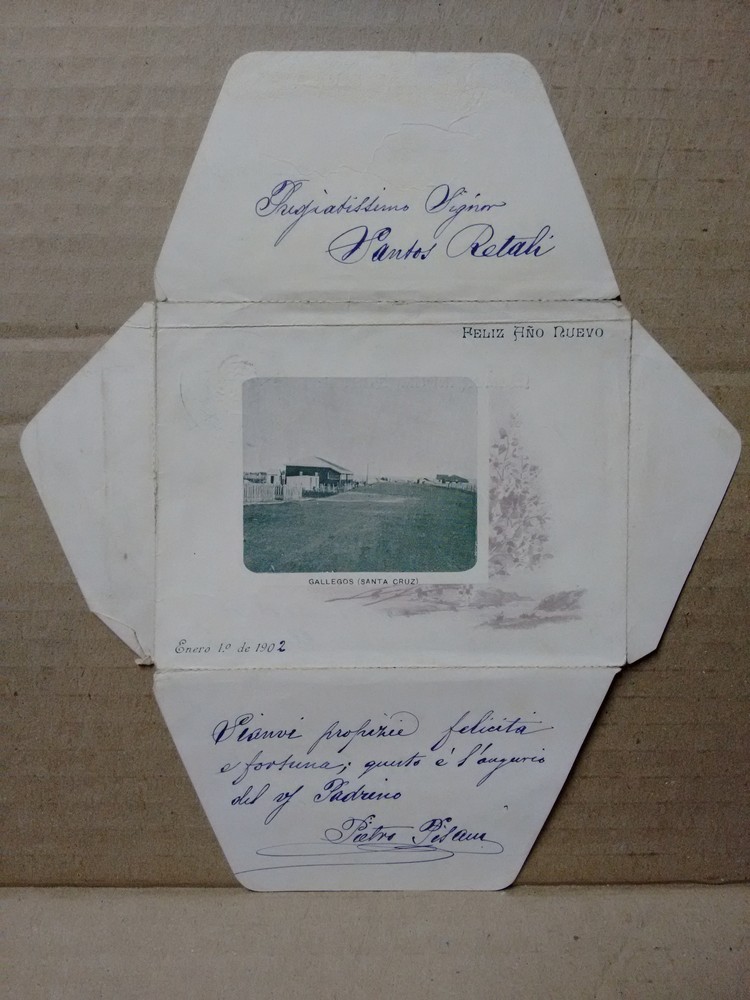 Pregiatissimo Signor
Santos Retali
FELIZ AÑO NUEVO
GALLEGOS (SANTA CRUZ)
Enero 1.º de 1902
Sianvi propizie felicità
e fortuna; questo é l'augurio
del Padrino
Pietro